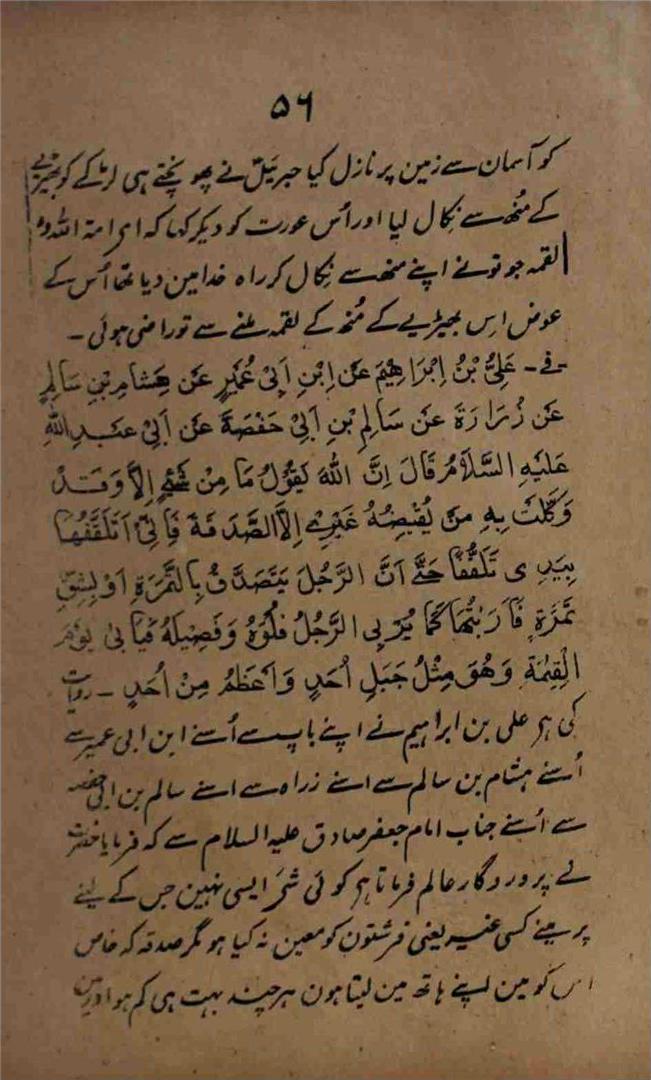 ۵۶
کو آسمان سے زمین پر نازل کیا جبرئیل نے پہونچتے ہی لڑکے کو بھیڑیے
کے مُنھ سے نِکال لیا اور اُس عورت کو دیکر کہا کہ ای امۃ اللہ وہ
لقمہ جو تونے اپنے منھ سے نِکال کر راہ خدا مین دیا تھا اُس کے
عوض اِس بھیڑیے کے مُنھ کے لقمہ ملنے سے تو راضی ہوئی ۔
فے ۔ عَلِیُّ بْنُ اِبْرَاهِیْمَ عَن اِبْنِ اَبِیْ عُمَیْرٍ عَن هِشَامِ بْنِ سَالِمٍ
عَن زُرَارَةَ عَن سَالِمِ بْنِ اَبِیْ حَفْصَةَ عَن اَبِیْ عَبْدِ اللهِ
عَلَیْهِ السَّلَامُ قَالَ اِنَّ اللهَ یَقُوْلُ مَا مِنْ شَیْءٍ اِلَّا وَقَدْ
وَکَّلْتُ بِهٖ مَنْ یَّقْبِضُهٗ غَیْرِیْ اِلَّا الصَّدَقَةَ فَاِنِّیْ اَتَلَقَّفُهَا
بِیَدِیْ تَلَقُّفًا حَتّٰی اَنَّ الرَّجُلَ یَتَصَدَّقُ بِالتَّمَرَةِ اَوْ بِشِقِّ
تَمَرَةٍ فَاَرَبِّیْهَا کَمَا یُرَبِّی الرَّجُلُ فُلُوَّهٗ وَفَصِیْلَهٗ فَیَاْتِیْ یَوْمَ
الْقِیٰمَةِ وَهُوَ مِثْلُ جَبَلِ اُحَدٍ وَاَعْظَمُ مِنْ اُحَدٍ ۔ روایت
کی ہر علی بن ابراہیم نے اپنے باپ سے اُسنے ابن ابی عمیر سے
اُسنے ہشام بن سالم سے اسنے زراہ سے اسنے سالم بن ابی حفصہ
سے اُسنے جناب امام جعفر صادق علیہ السلام سے کہ فرمایا حضرت
نے پروردگار عالم فرماتا ہر کوئی شَی ایسی نہین جس کے لینے
پر مینے کسی غیر یعنی فرشتون کو معین نہ کیا ہو مگر صدقہ کہ خاص
اس کو مین اپنے ہاتھ مین لیتا ہون ہر چند بہت ہی کم ہو اور مین